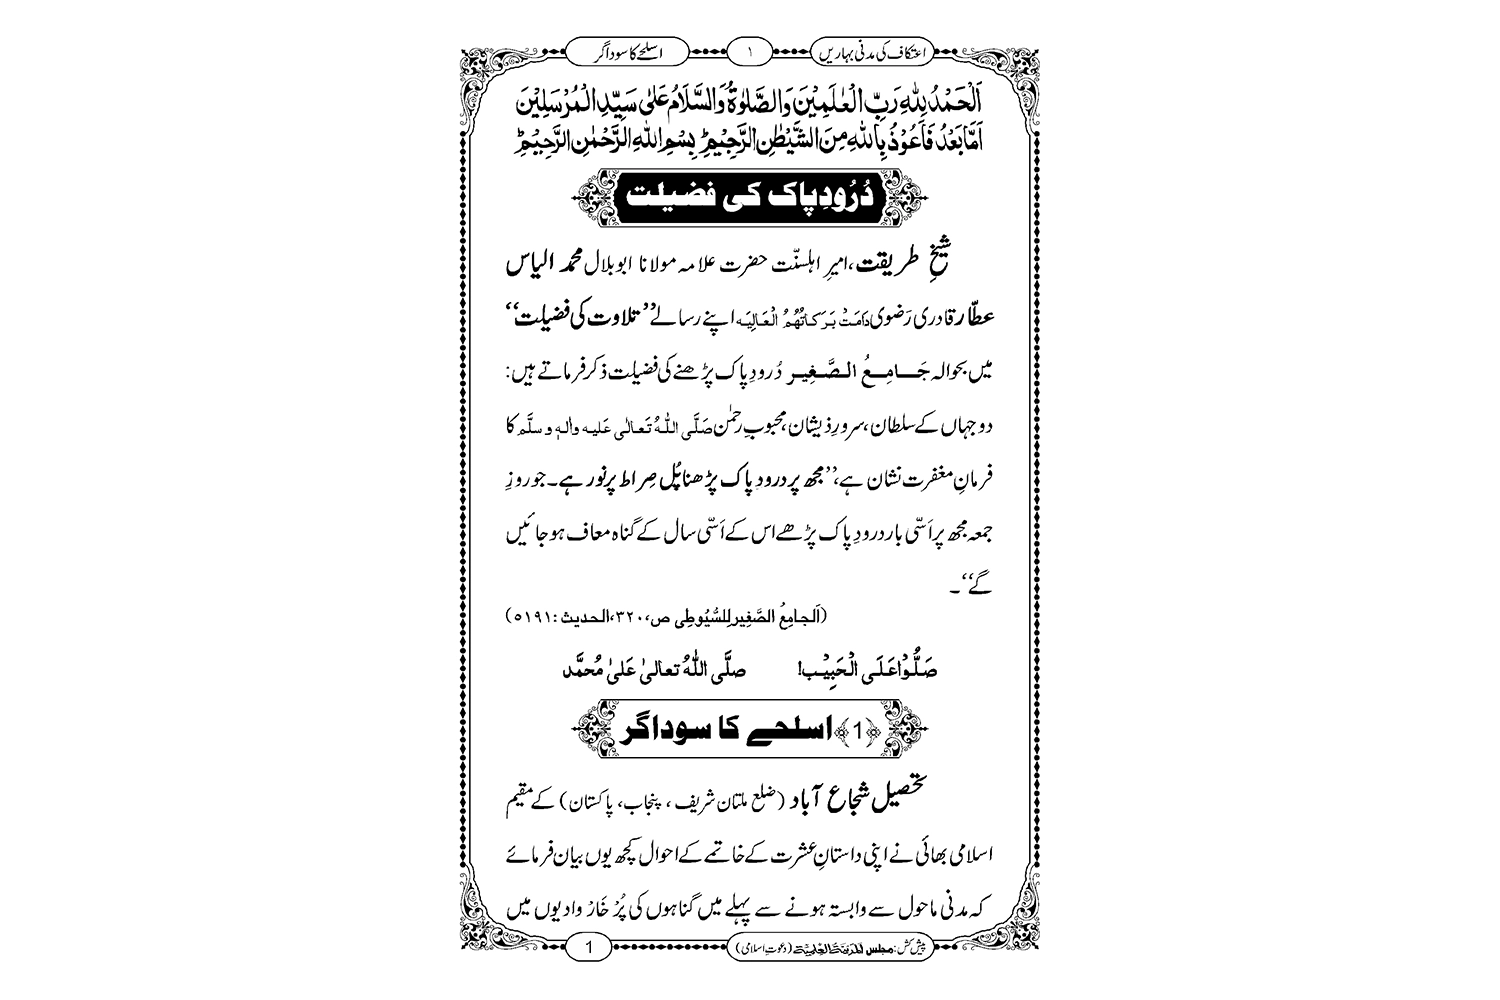 اعتکاف کی مدنی بہاریں ۱ اسلحے کا سوداگر
اَلْحَمْدُ لِلّٰهِ رَبِّ الْعٰلَمِيْنَ وَالصَّلٰوةُ وَالسَّلَامُ عَلٰى سَيِّدِ الْمُرْسَلِيْنَ
اَمَّا بَعْدُ فَاَعُوْذُ بِاللهِ مِنَ الشَّيْطٰنِ الرَّجِيْمِؕ بِسْمِ اللهِ الرَّحْمٰنِ الرَّحِيْمِؕ
دُرُودِ پاک کی فضیلت
شیخِ طریقت، امیرِ اہلسنّت حضرت علامہ مولانا ابوبلال محمد الیاس
عطّار قادری رَضَوی دَامَتْ بَرَكَاتُهُمُ الْعَالِيَه اپنے رسالے ’’تلاوت کی فضیلت‘‘
میں بحوالہ جَامِعُ الصَّغِیر دُرودِ پاک پڑھنے کی فضیلت ذکر فرماتے ہیں:
دو جہاں کے سلطان، سرورِ ذیشان، محبوبِ رحمٰن صَلَّى اللّٰهُ تَعَالٰى عَلَيه واٰلهٖ وسلَّم کا
فرمانِ مغفرت نشان ہے، ’’مجھ پر درودِ پاک پڑھنا پُل صِراط پر نور ہے۔ جو روزِ
جمعہ مجھ پر اَسّی بار درودِ پاک پڑھے اس کے اَسّی سال کے گناہ معاف ہو جائیں
گے‘‘۔
(اَلجامِعُ الصَّغِير لِلسُّيُوطِى ص، ۳۲۰، الحديث: ۵۱۹۱)
صَلُّوْا عَلَى الْحَبِيْب! صلَّى اللّٰهُ تعالىٰ عَلىٰ مُحمَّد
﴿1﴾ اسلحے کا سوداگر
تحصیل شجاع آباد (ضلع ملتان شریف، پنجاب، پاکستان) کے مقیم
اسلامی بھائی نے اپنی داستانِ عشرت کے خاتمے کے احوال کچھ یوں بیان فرمائے
کہ مدنی ماحول سے وابستہ ہونے سے پہلے میں گناہوں کی پُرْ خَارْ وادیوں میں
پیش کش: مجلس المدینۃ العلمیۃ (دعوتِ اسلامی) 1